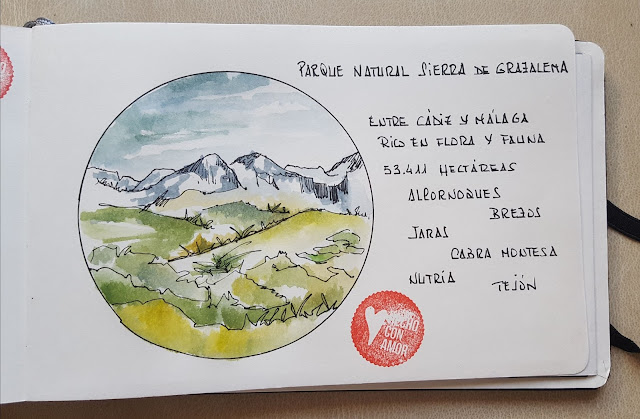 PARQUE NATURAL SIERRA DE GRAZALEMA
ENTRE CÁDIZ Y MÁLAGA
RICO EN FLORA Y FAUNA
53.411 HECTÁREAS
ALCORNOQUES
BREZOS
JARAS
CABRA MONTESA
NUTRIA
TEJÓN
HECHO
CON
AMOR